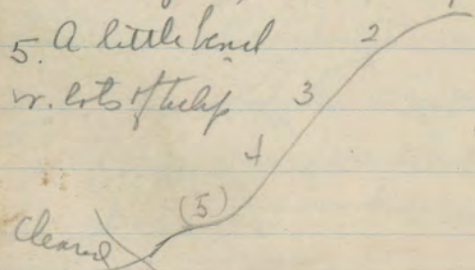 5. A little bend
w. lots of tulip
2
3
4
(5)
Cleared